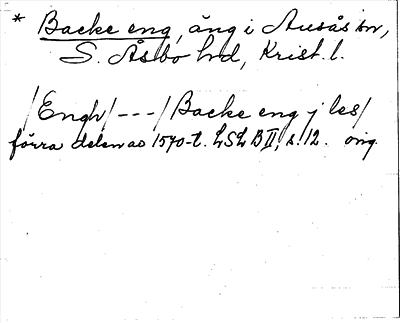 * Backe eng, äng i Ausås sn,
S. Åsbo hd, Krist. l.
/Engh/---/Backe eng j les/
förra delen av 1570-t. LSLB II, s. 12. orig.